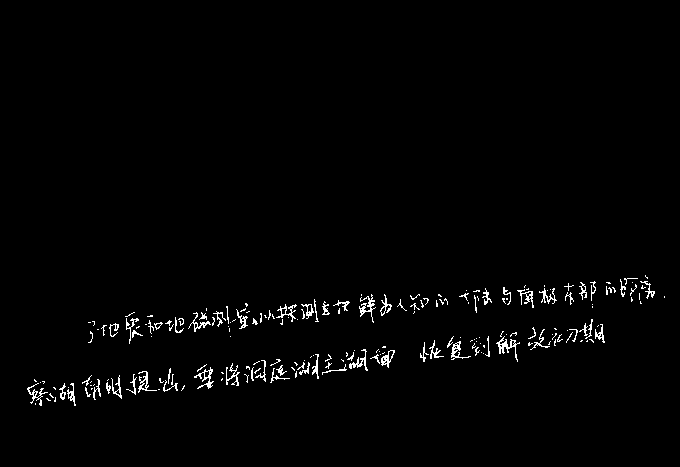 了地震和地磁测量,以探测当地鲜为人知的大陆与南极东部的距离.
察湖南时提出,要将洞庭湖主湖面 恢复到解放初期